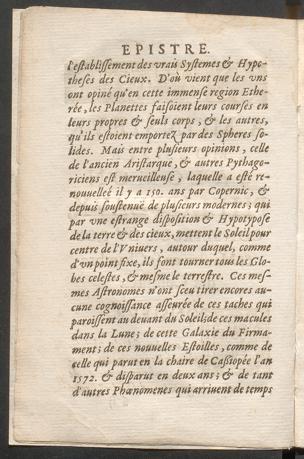 EPISTRE.
l'establissement des vrais Systemes & Hypo-
theses des Cieux. D'où vient que les vns
ont opiné qu'en cette immense region Ethe-
rée, les Planettes faisoient leurs courses en
leurs propres & seuls corps, & les autres,
qu'ils estoient emportez par des Spheres so-
lides. Mais entre plusieurs opinions, celle
de l'ancien Aristarque, & autres Pythago-
riciens est merueilleuse, laquelle a esté re-
nouuelleé il y a 150. ans par Copernic, &
depuis soustenuë de plusieurs modernes; qui
par vne estrange disposition & Hypotypose
de la terre & des cieux, mettent le Soleil pour
centre de l'Vniuers, autour duquel, comme
d'vn point fixe, ils font tourner tous les Glo-
bes celestes, & mesme le terrestre. Ces mes-
mes Astronomes n'ont sceu tirer encores au-
cune cognoissance asseurée de ces taches qui
paroissent au deuant du Soleil; de ces macules
dans la Lune; de cette Galaxie du Firma-
ment; de ces nouuelles Estoilles, comme de
celle qui parut en la chaire de Cassiopée l'an
1572. & disparut en deux ans; & de tant
d'autres Phœnomenes qui arriuent de temps